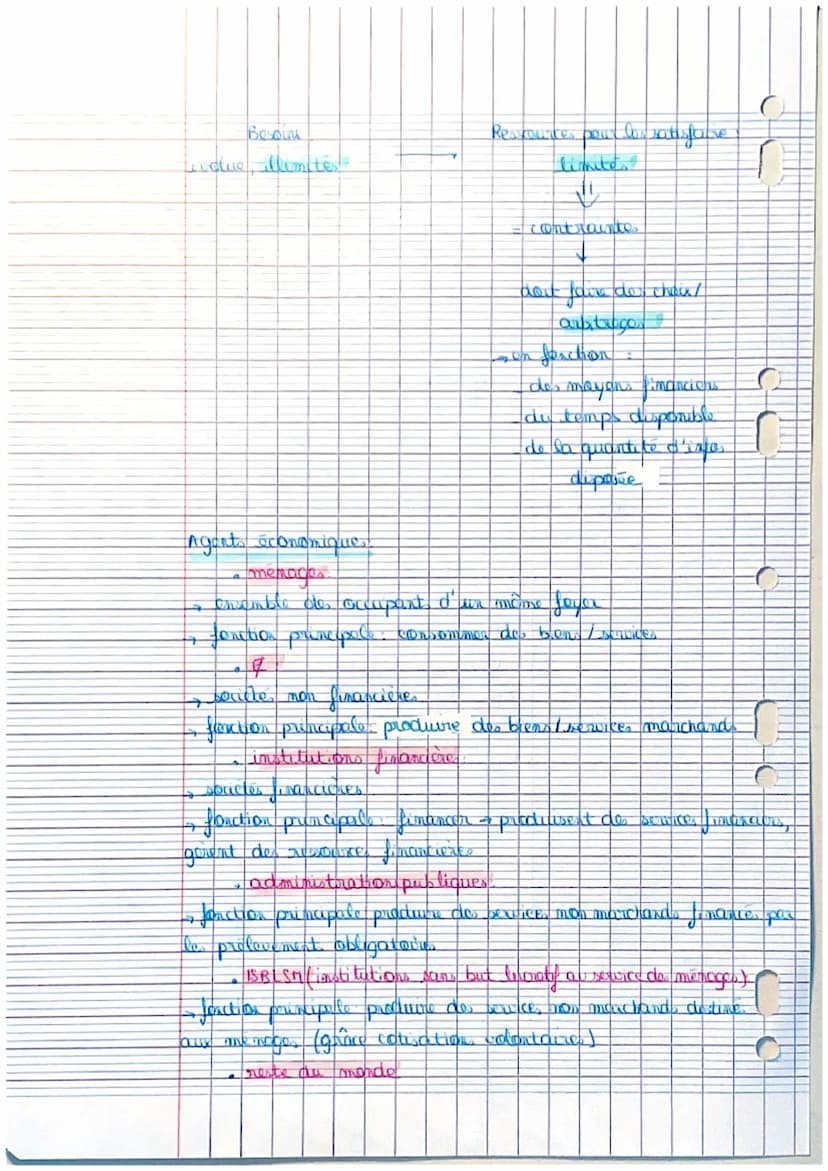 Besoins
évolue, illimités
Ressources pour les satisfaire
limités
= contraintes
doit faire des choix/
arbitrages
→ en fonction :
- des moyens financiers
- du temps disponible
- de la quantité d'infos
disposée
Agents économiques:
• ménages
→ ensemble des occupant d'un même foyer
→ fonction principale : consommer des biens / services
•
→ société non financières
→ fonction principale: produire des biens/services marchands
• institutions financière
→ sociétés financières
→ fonction principale : financer → produisent des services financiers,
gèrent des ressources financières
• administration publiques
→ fonction principale produire des services non marchands financés par
les prélevement obligatoires
• ISBLSM (institutions sans but lucratif au service de ménages)
→ fonction principale produire des services non marchands destiné
aux ménages (grâce cotisations volontaires)
• reste du monde